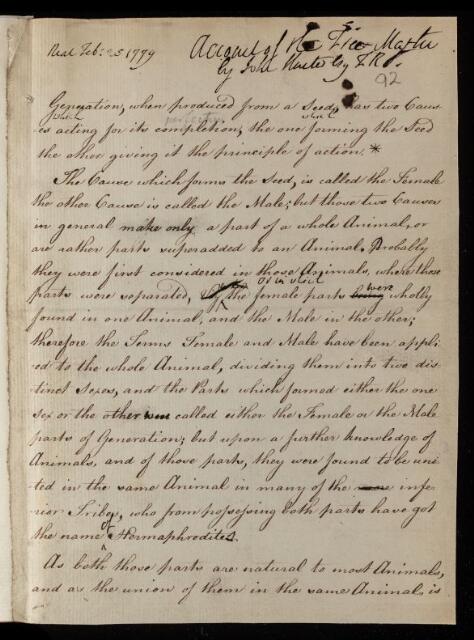 Read Feb: 25 1779
Account of the Free Martin
by John Hunter Esq F.R.S.
92
Generation, when produced from a Seed, has two Caus-
es acting for its completion; the one forming the Seed
the other giving it the principle of action. *
The Cause which forms the Seed, is called the Female
the other Cause is called the Male; but those two Causes
in general make only a part of a whole Animal, or
are rather parts superadded to an Animal. Probably
they were first considered in those Animals, where those
or in which
parts were separated, the female parts being were wholly
found in one Animal, and the Male in the other;
therefore the Terms Female and Male have been appli-
ed to the whole Animal, dividing them into two dis-
tinct Sexes, and the Parts which formed either the one
Sex or the other were called either the Female or the Male
parts of Generation; but upon a further knowledge of
Animals, and of those parts, they were found to be uni-
ted in the same Animal in many of the infe-
rior Tribes, who from possessing both parts have got
the name of Hermaphrodites.
As both those parts are natural to most Animals,
and as the union of them in the same Animal is